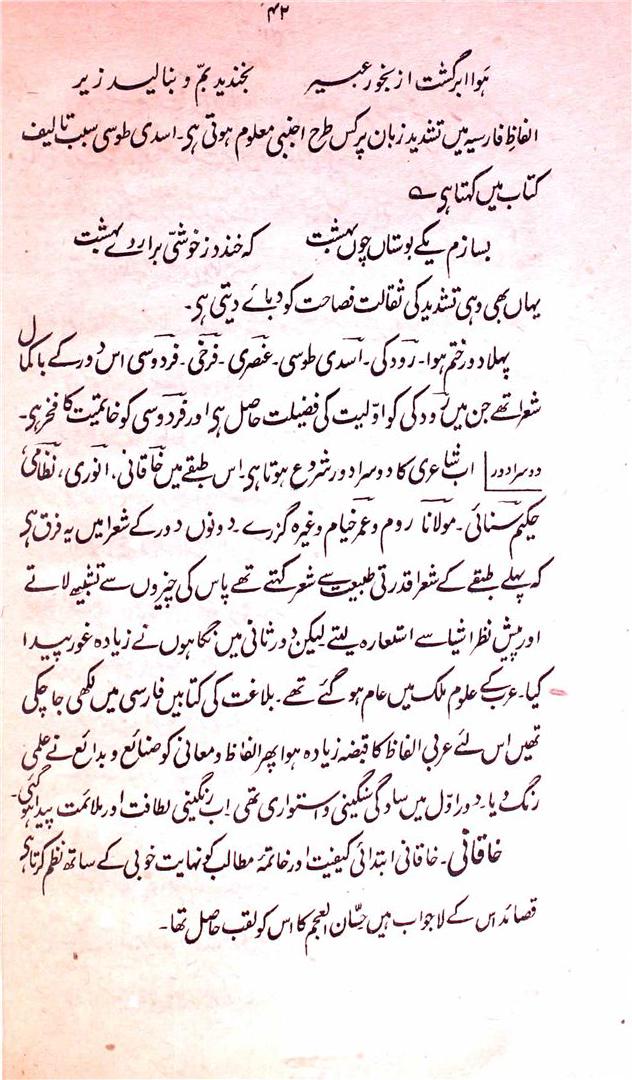 ۴۲
ہوا ابر گشت از بخور عبیر بخندید بمّ و بنالید زیر
الفاظِ فارسیہ میں تشدید زبان پر کس طرح اجنبی معلوم ہوتی ہی۔ اسدی طوسی سبب تالیف
کتاب میں کہتا ہی ؎
بسازم یکے بوستاں چوں بہشت کہ خندد ز خوشّی بر اردے بہشت
یہاں بھی وہی تشدید کی ثقالت فصاحت کو دبائے دیتی ہی۔
پہلا دور ختم ہوا۔ رودکی۔ اسدی طوسی۔ عنصری۔ فرخی۔ فردوسی اس دور کے باکمال
شعرا تھے جن میں رودکی کو اوّلیت کی فضیلت حاصل ہی اور فردوسی کو خاتمیت کا فخر ہی۔
دوسرا دور اب شاعری کا دوسرا دور شروع ہوتا ہی۔ اس طبقے میں خاقانی، انوری، نظامی
حکیم سنائی۔ مولانا روم و عمر خیام وغیرہ گزرے۔ دونوں دور کے شعرا میں یہ فرق ہی
کہ پہلے طبقے کے شعرا قدرتی طبیعت سے شعر کہتے تھے پاس کی چیزوں سے تشبیہ لاتے
اور پیش نظر اشیا سے استعارہ لیتے لیکن دور ثانی میں نگاہوں نے زیادہ غور پیدا
کیا۔ عرب کے علوم ملک میں عام ہو گئے تھے۔ بلاغت کی کتابیں فارسی میں لکھی جا چکی
تھیں اس لئے عربی الفاظ کا قبضہ زیادہ ہوا پھر الفاظ و معانی کو صنائع و بدائع نے علمی
رنگ دیا۔ دور اوّل میں سادگی سنگینی و استواری تھی اب رنگینی لطافت اور ملائمت پیدا ہو گئی۔
خاقانی۔ خاقانی ابتدائی کیفیت اور خاتمۂ مطالب کو نہایت خوبی کے ساتھ نظم کرتا ہی
قصائد اس کے لاجواب ہیں حسّان العجم کا اس کو لقب حاصل تھا۔